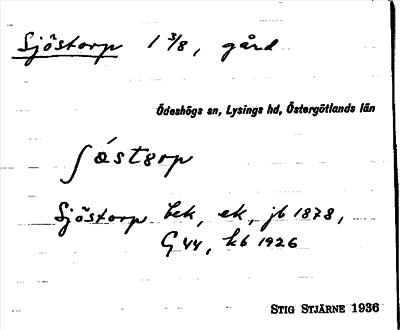 Sjöstorp 1 3/8, gård
Ödeshögs sn, Lysings hd, Östergötlands län
Sjöstorp bek, ek, jb 1878,
G 44, kb 1926
STIG STJÄRNE 1936